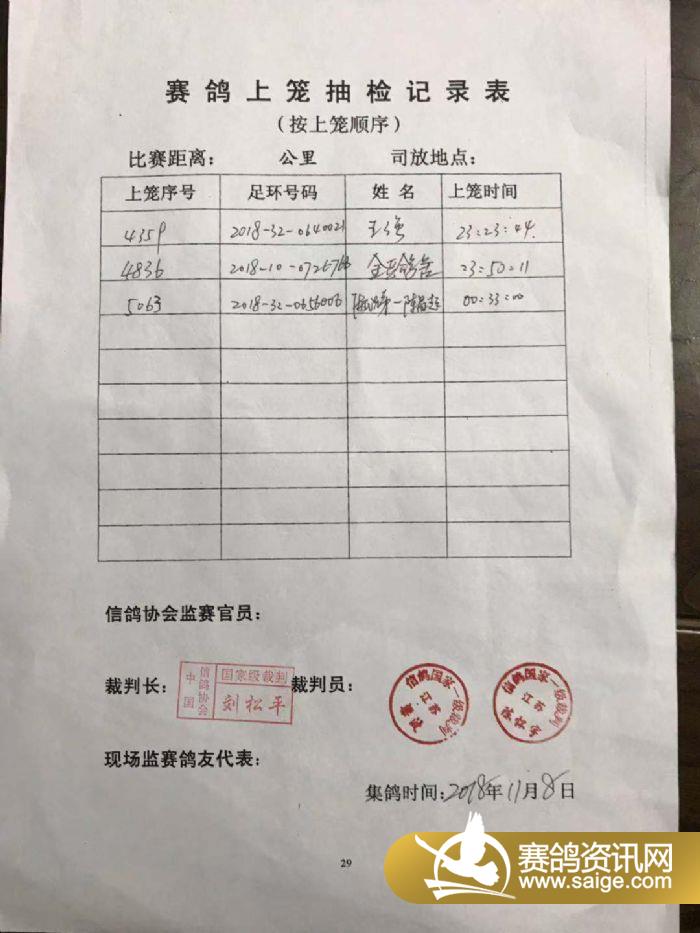 赛鸽上笼抽检记录表
(按上笼顺序)
比赛距离： 公里 司放地点：
上笼序号 足环号码 姓名 上笼时间
4359 2018-32-0640021 王强 23:23:44
4836 2018-10-0726766 23:50:11
5063 2018-32-0656006 00:33:00
信鸽协会监赛官员：
裁判长： 中国信鸽协会 国家级裁判 刘松平 裁判员： 信鸽国家一级裁判 江苏 信鸽国家一级裁判 江苏
现场监赛鸽友代表：
集鸽时间：2018年11月8日
29
赛鸽资讯网
www.saige.com